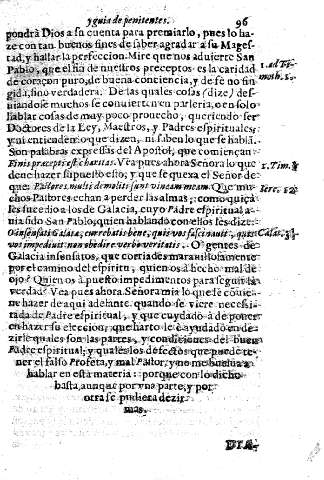 y guia de penitentes. 96
pondrà Dios a su cuenta para premiarlo, pues lo ha-
ze con tan buenos fines de saber agradar a su Mages-
tad, y hallar la perfeccion. Mire que nos aduierte San
Pablo, que el fin de nuestros preceptos es la caridad
de coraçon puro, de buena conciencia, y de fe no fin-
gida, sino verdadera. De las quales cosas (dize) des-
uiandose muchos se conuierten en parleria, o en solo
hablar cosas de muy poco prouecho, queriendo ser
Doctores de la Ley, Maestros, y Padres espirituales;
y ni entienden lo que dizen, ni saben lo que se habla.
Son palabras expressas del Apostol, que comiençan
Finis præcepti est charitas. Vea pues ahora Señora lo que
deue hazer supuesto esto, y que se quexa el Señor de
que: Pastores multi demoliti sunt vineam meam. Que mu-
chos Pastores echan a perder las almas; como quiçà
les sucedio a los de Galacia, cuyo Padre espiritual a-
uia sido San Pablo, quien hablando con ellos les dize:
O insensati Galatæ, currebatis bene, quis vos fascinauit, quis
vos impediuit non obedire verbo veritatis. O gentes de
Galacia insensatos, que corriades marauillosamente
por el camino del espiritu, quien os a hecho mal de
ojo? Quien os à puesto impedimentos para seguir la
verdad? Vea pues ahora Señora mia lo que se conuie-
ne hazer de aqui adelante, quando se viere necessi-
tada de Padre espiritual, y que cuydado à de poner
en hazer su eleccion, que harto le è ayudado en de-
zirle quales son las partes, y condiciones del buen
Padre espiritual, y quales los defectos que puede te-
ner el falso Profeta, y mal Pastor, y no me buelua a
hablar en esta materia: porque con lo dicho
basta, aunque por vna parte, y por
otra se pudiera dezir
mas.
DIA-
1. ad Ti-
moth. 1.
1. Tim.
Iere. 12.
Galat. 3.